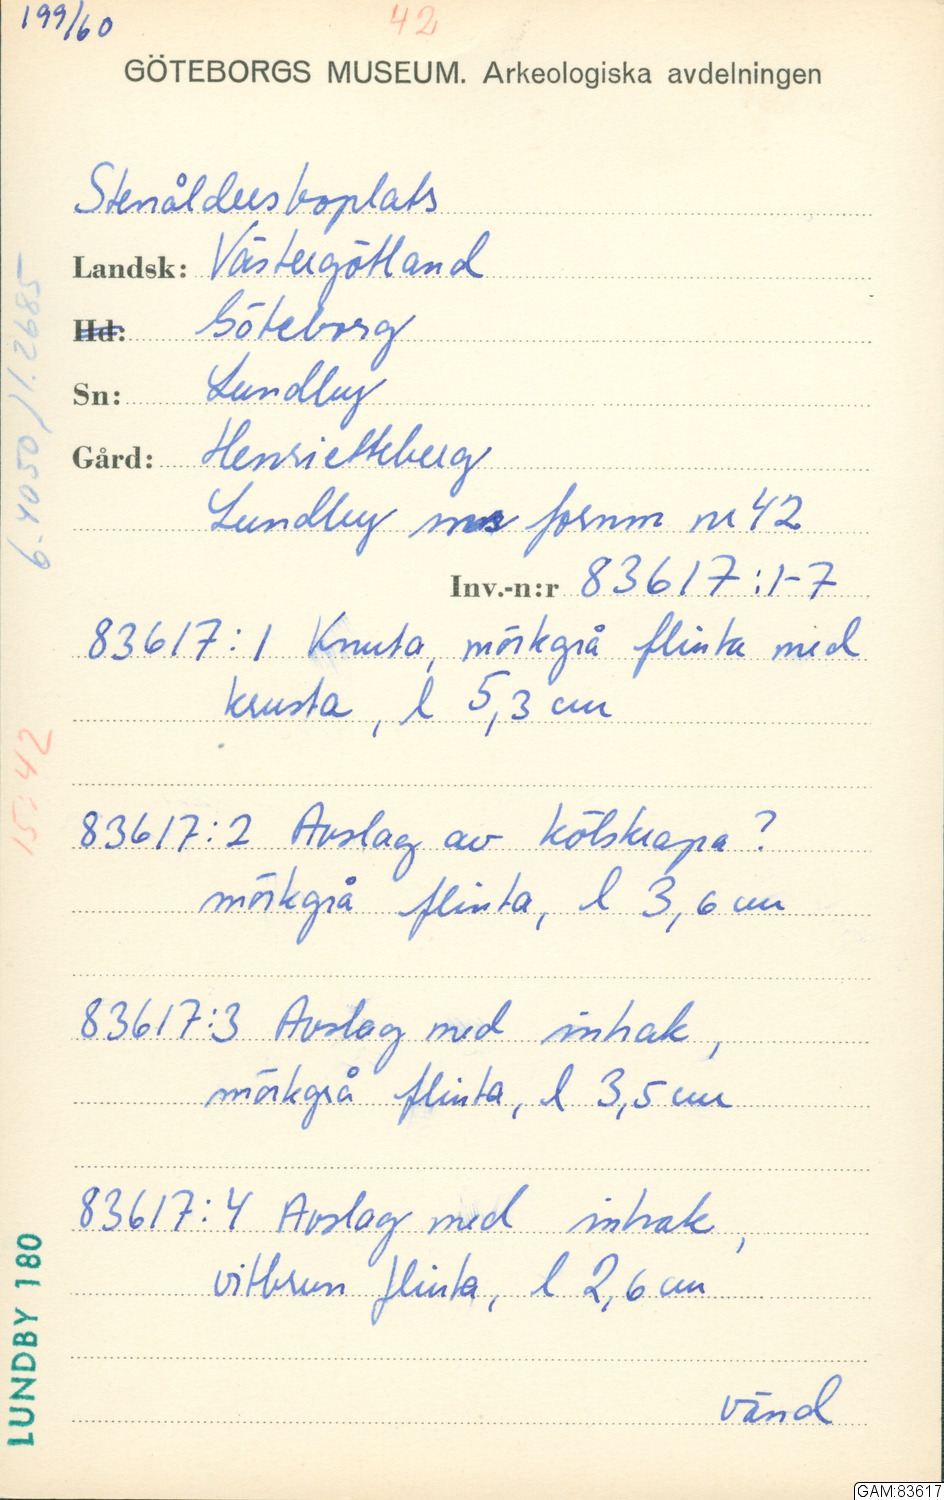 199/60
42
GÖTEBORGS MUSEUM. Arkeologiska avdelningen
Stenåldersboplats
Landsk: Västergötland
Hd: Göteborg
Sn: Lundby
Gård: Henrietteberg
Lundby fornm nr 42
Inv.-n:r 83617:1-7
83617:1 Knuta, mörkgrå flinta med
krusta, l 5,3 cm
83617:2 Avslag av kölskrapa?
mörkgrå flinta, l 3,6 cm
83617:3 Avslag med inhak,
mörkgrå flinta, l 3,5 cm
83617:4 Avslag med inhak,
vitbrun flinta, l 2,6 cm
vänd
6.4050/1.2685
15:42
LUNDBY 180
GAM:83617